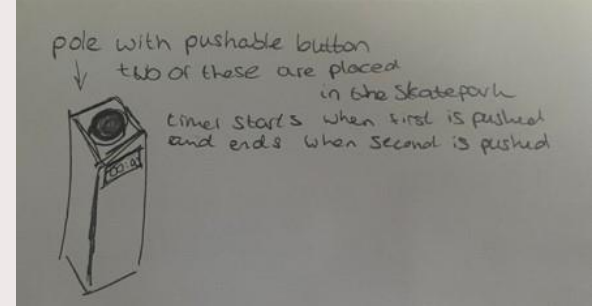 pole with pushable button
two of these are placed
in the skatepark
timer starts when first is pushed
and ends when second is pushed